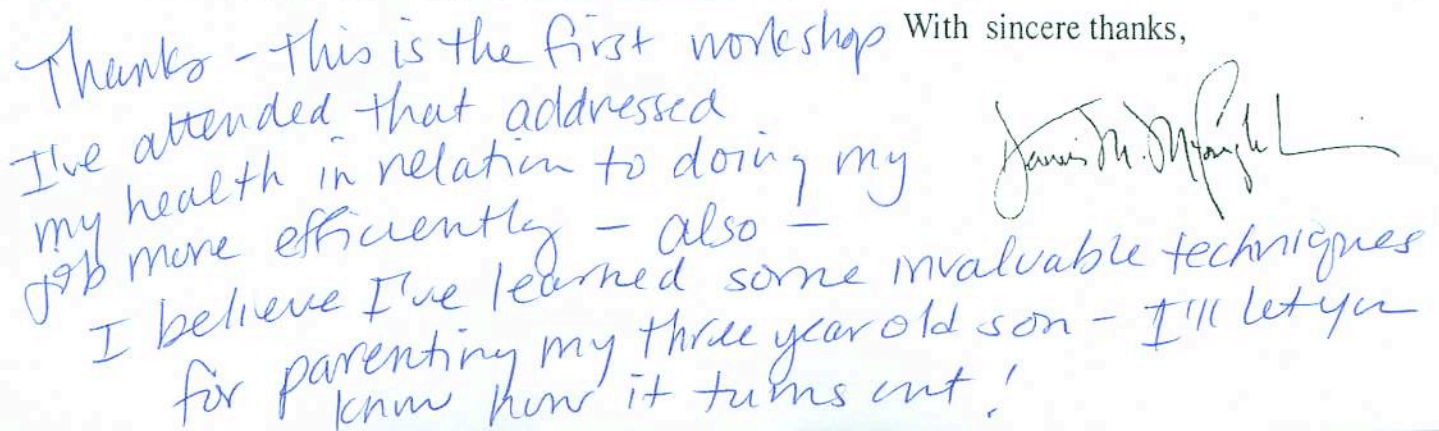 Thanks - this is the first workshop
I've attended that addressed
my health in relation to doing my
job more efficiently - also -
I believe I've learned some invaluable techniques
for parenting my three year old son - I'll let you
know how it turns out!
With sincere thanks,